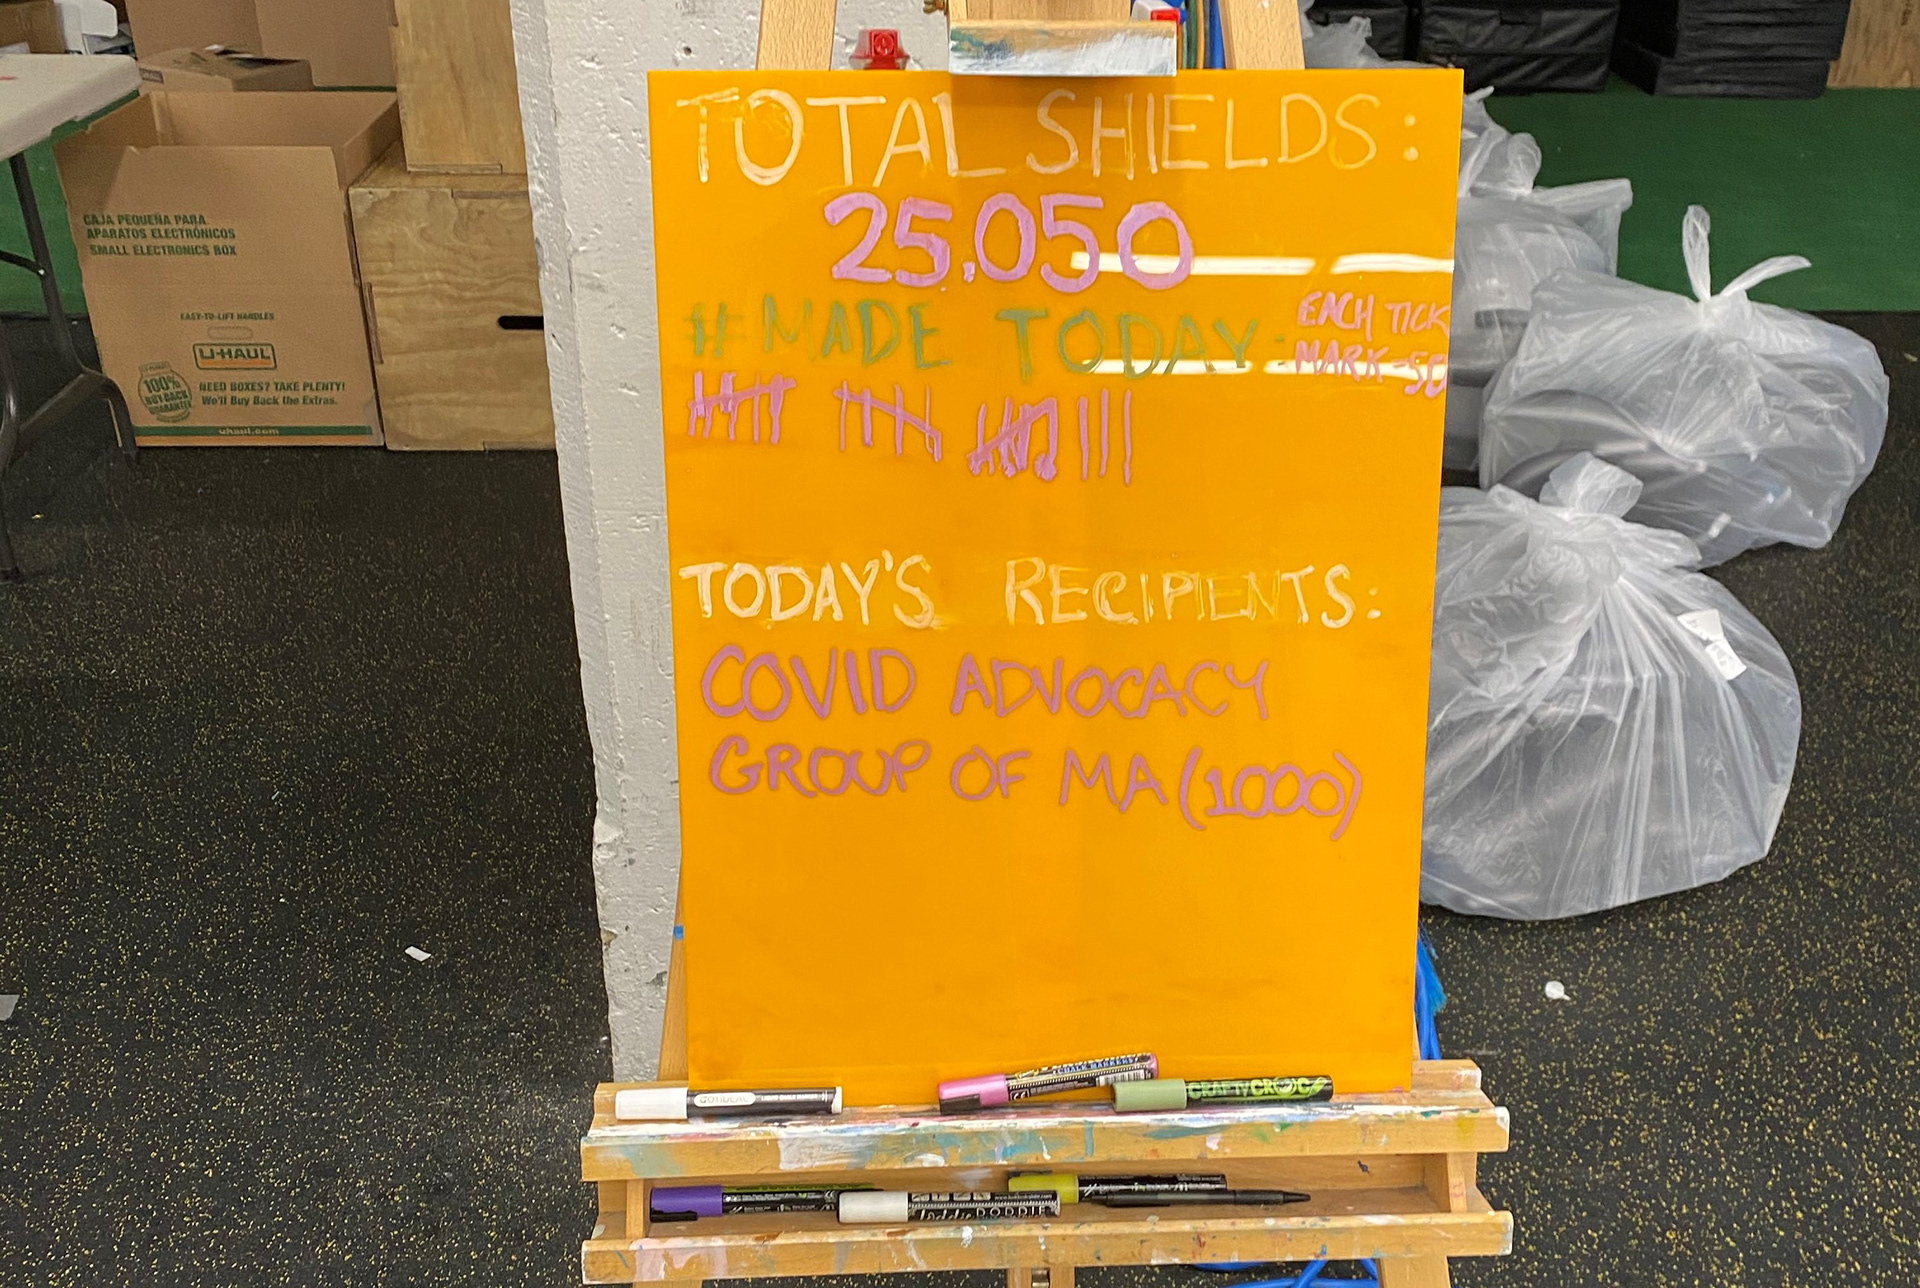 TOTAL SHIELDS:
25,050
# MADE TODAY:
EACH TICK
MARK-50
TODAY'S RECIPIENTS:
COVID ADVOCACY
GROUP OF MA (1000)
CAJA PEQUEÑA PARA
APARATOS ELECTRÓNICOS
SMALL ELECTRONICS BOX
EASY-TO-LIFT HANDLES
U-HAUL
100%
BUY BACK
GUARANTEE
NEED BOXES? TAKE PLENTY!
We'll Buy Back the Extras.
uhaul.com
CHALK MARKERS
CRAFTY CROC